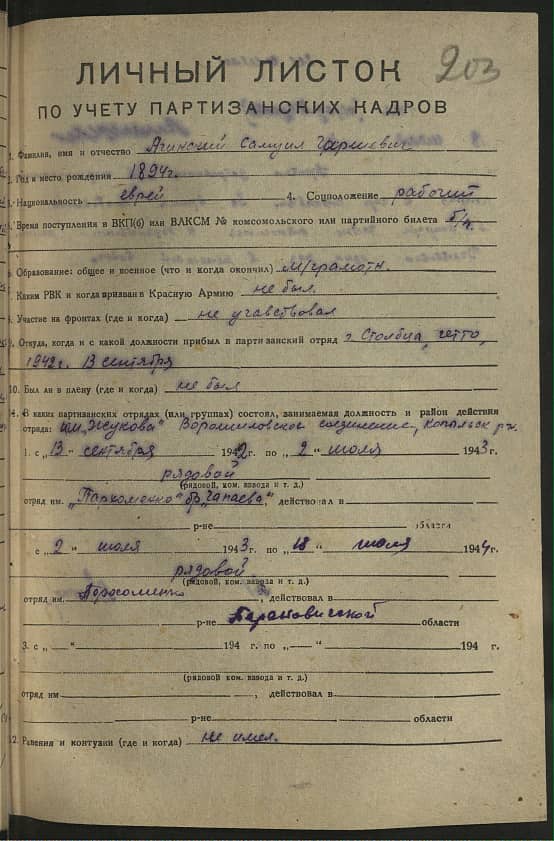 203
ЛИЧНЫЙ ЛИСТОК
ПО УЧЕТУ ПАРТИЗАНСКИХ КАДРОВ
1. Фамилия, имя и отчество Агинский Самуил
2. Год и место рождения 1894 г.
3. Национальность еврей 4. Соцположение рабочий
5. Время поступления в ВКП(б) или ВЛКСМ № комсомольского или партийного билета б/п.
6. Образование: общее и военное (что и когда окончил) м/грамотн.
7. Каким РВК и когда призван в Красную Армию не был.
8. Участие на фронтах (где и когда) не учавствовал
9. Откуда, когда и с какой должности прибыл в партизанский отряд г. Столбцы, гетто,
1942 г. 13 сентября
10. Был ли в плену (где и когда) не был
В каких партизанских отрядах (или группах) состоял, занимаемая должность и район действия
отряда: им. Жукова" Ворошиловское соединение, Копыльск р-н.
1. с „13" сентября 1942 г. по „2" июля 1943 г.
рядовой
(рядовой, ком. взвода и т. д.)
отряд им. „Пархоменко" бр. „Чапаева", действовал в
р-не области
с „2" июля 1943 г. по „18" июля 1944 г.
рядовой
(рядовой, ком. взвода и т. д.)
отряд им. Пархоменко, действовал в
р-не Барановичской области
3. с „—" 194 г. по „—" 194 г.
(рядовой, ком. взвода и т. д.)
отряд им. , действовал в
р-не области
12. Ранения и контузии (где и когда) не имел.